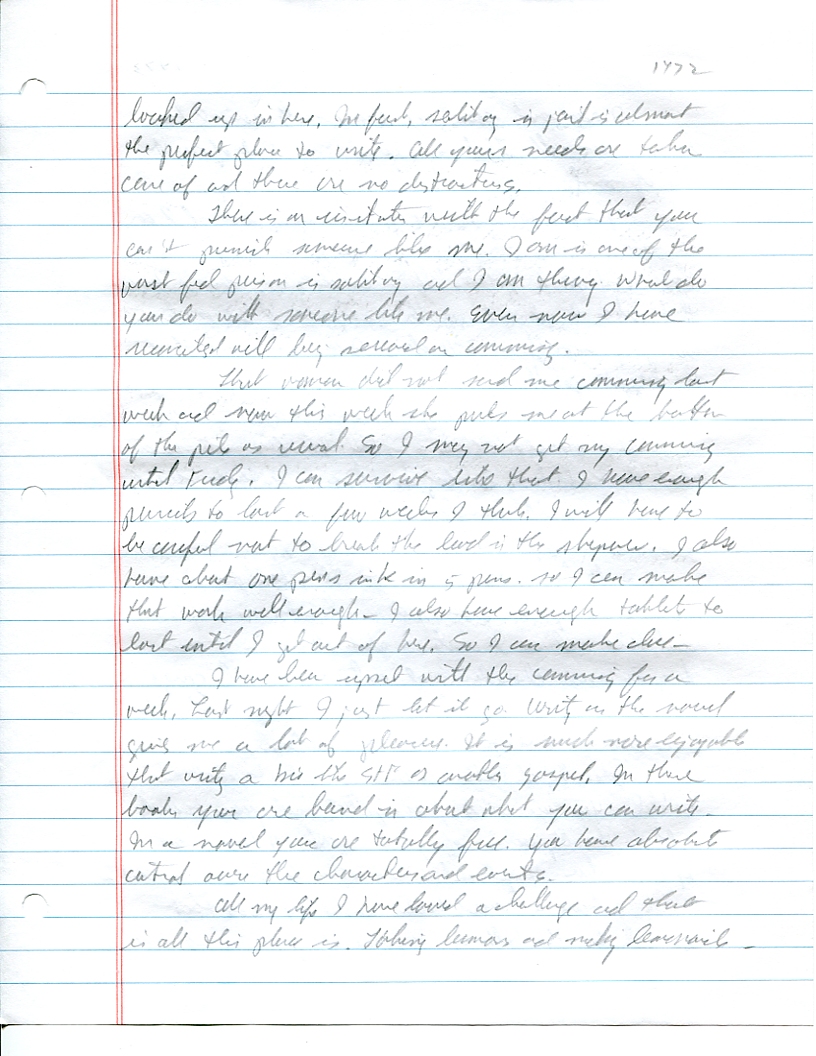 1472
locked up in here. In fact, solitay in jail is almost
the perfect place to write. All yours needs are taken
care of and there are no distractions.
There is an with the fact that you
can't punish someone like me. I am in one of the
worst person is solitay ad I am What do
you do with someone like me. Even now I have
will on comming.
That woman did not send me comming last
week ad now this week she puts me at the bottom
of the pile as usual. So I may not get my comming
until Tuesdy. I can survive like that. I have enough
pencils to last a few weeks I think. I will have to
be careful not to break the lead in the sharpener. I also
have about one pens ink in 5 pens. so I can make
that work well enough- I also have enough tablets to
last until I get out of here. So I can make due-
I have been upset with the comming for a
week. Last night I just let it go. Writing on the novel
give me a lot of pleasure. It is much more enjoyable
that writing a like the or another gospel. In those
books your are bound in about what you can write.
In a novel you are totally free. You have absolute
control over the characters and events.
All my life I have loved a challenge ad that
is all this place is. Taking lemons ad making lemonade-